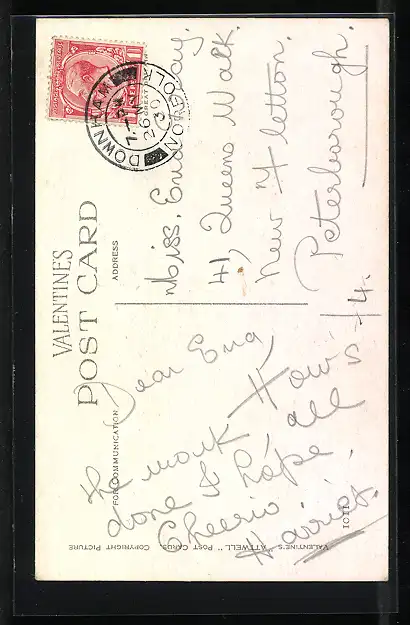 VALENTINES
POST CARD
FOR COMMUNICATION
ADDRESS
DOWNHAM
NORFOLK
7-PM
26
30
Miss.
41, Queens Walk.
New Fletton.
Peterborough.
Dear Ena
How's
the work all
done I hope.
Cheerio
Harriet.
VALENTINE'S "ATTWELL" POST CARDS. COPYRIGHT PICTURE